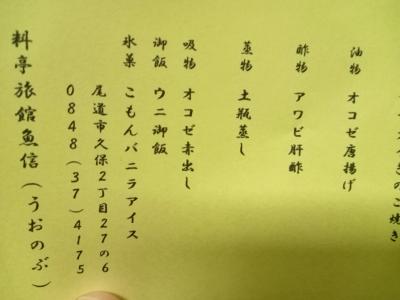 きのこ焼き
油物 オコゼ唐揚げ
酢物 アワビ肝酢
蒸物 土瓶蒸し
吸物 オコゼ赤出し
御飯 ウニ御飯
氷菓 こもんバニラアイス
尾道市久保2丁目27の6
0848(37)4175
料亭旅館魚信(うおのぶ)